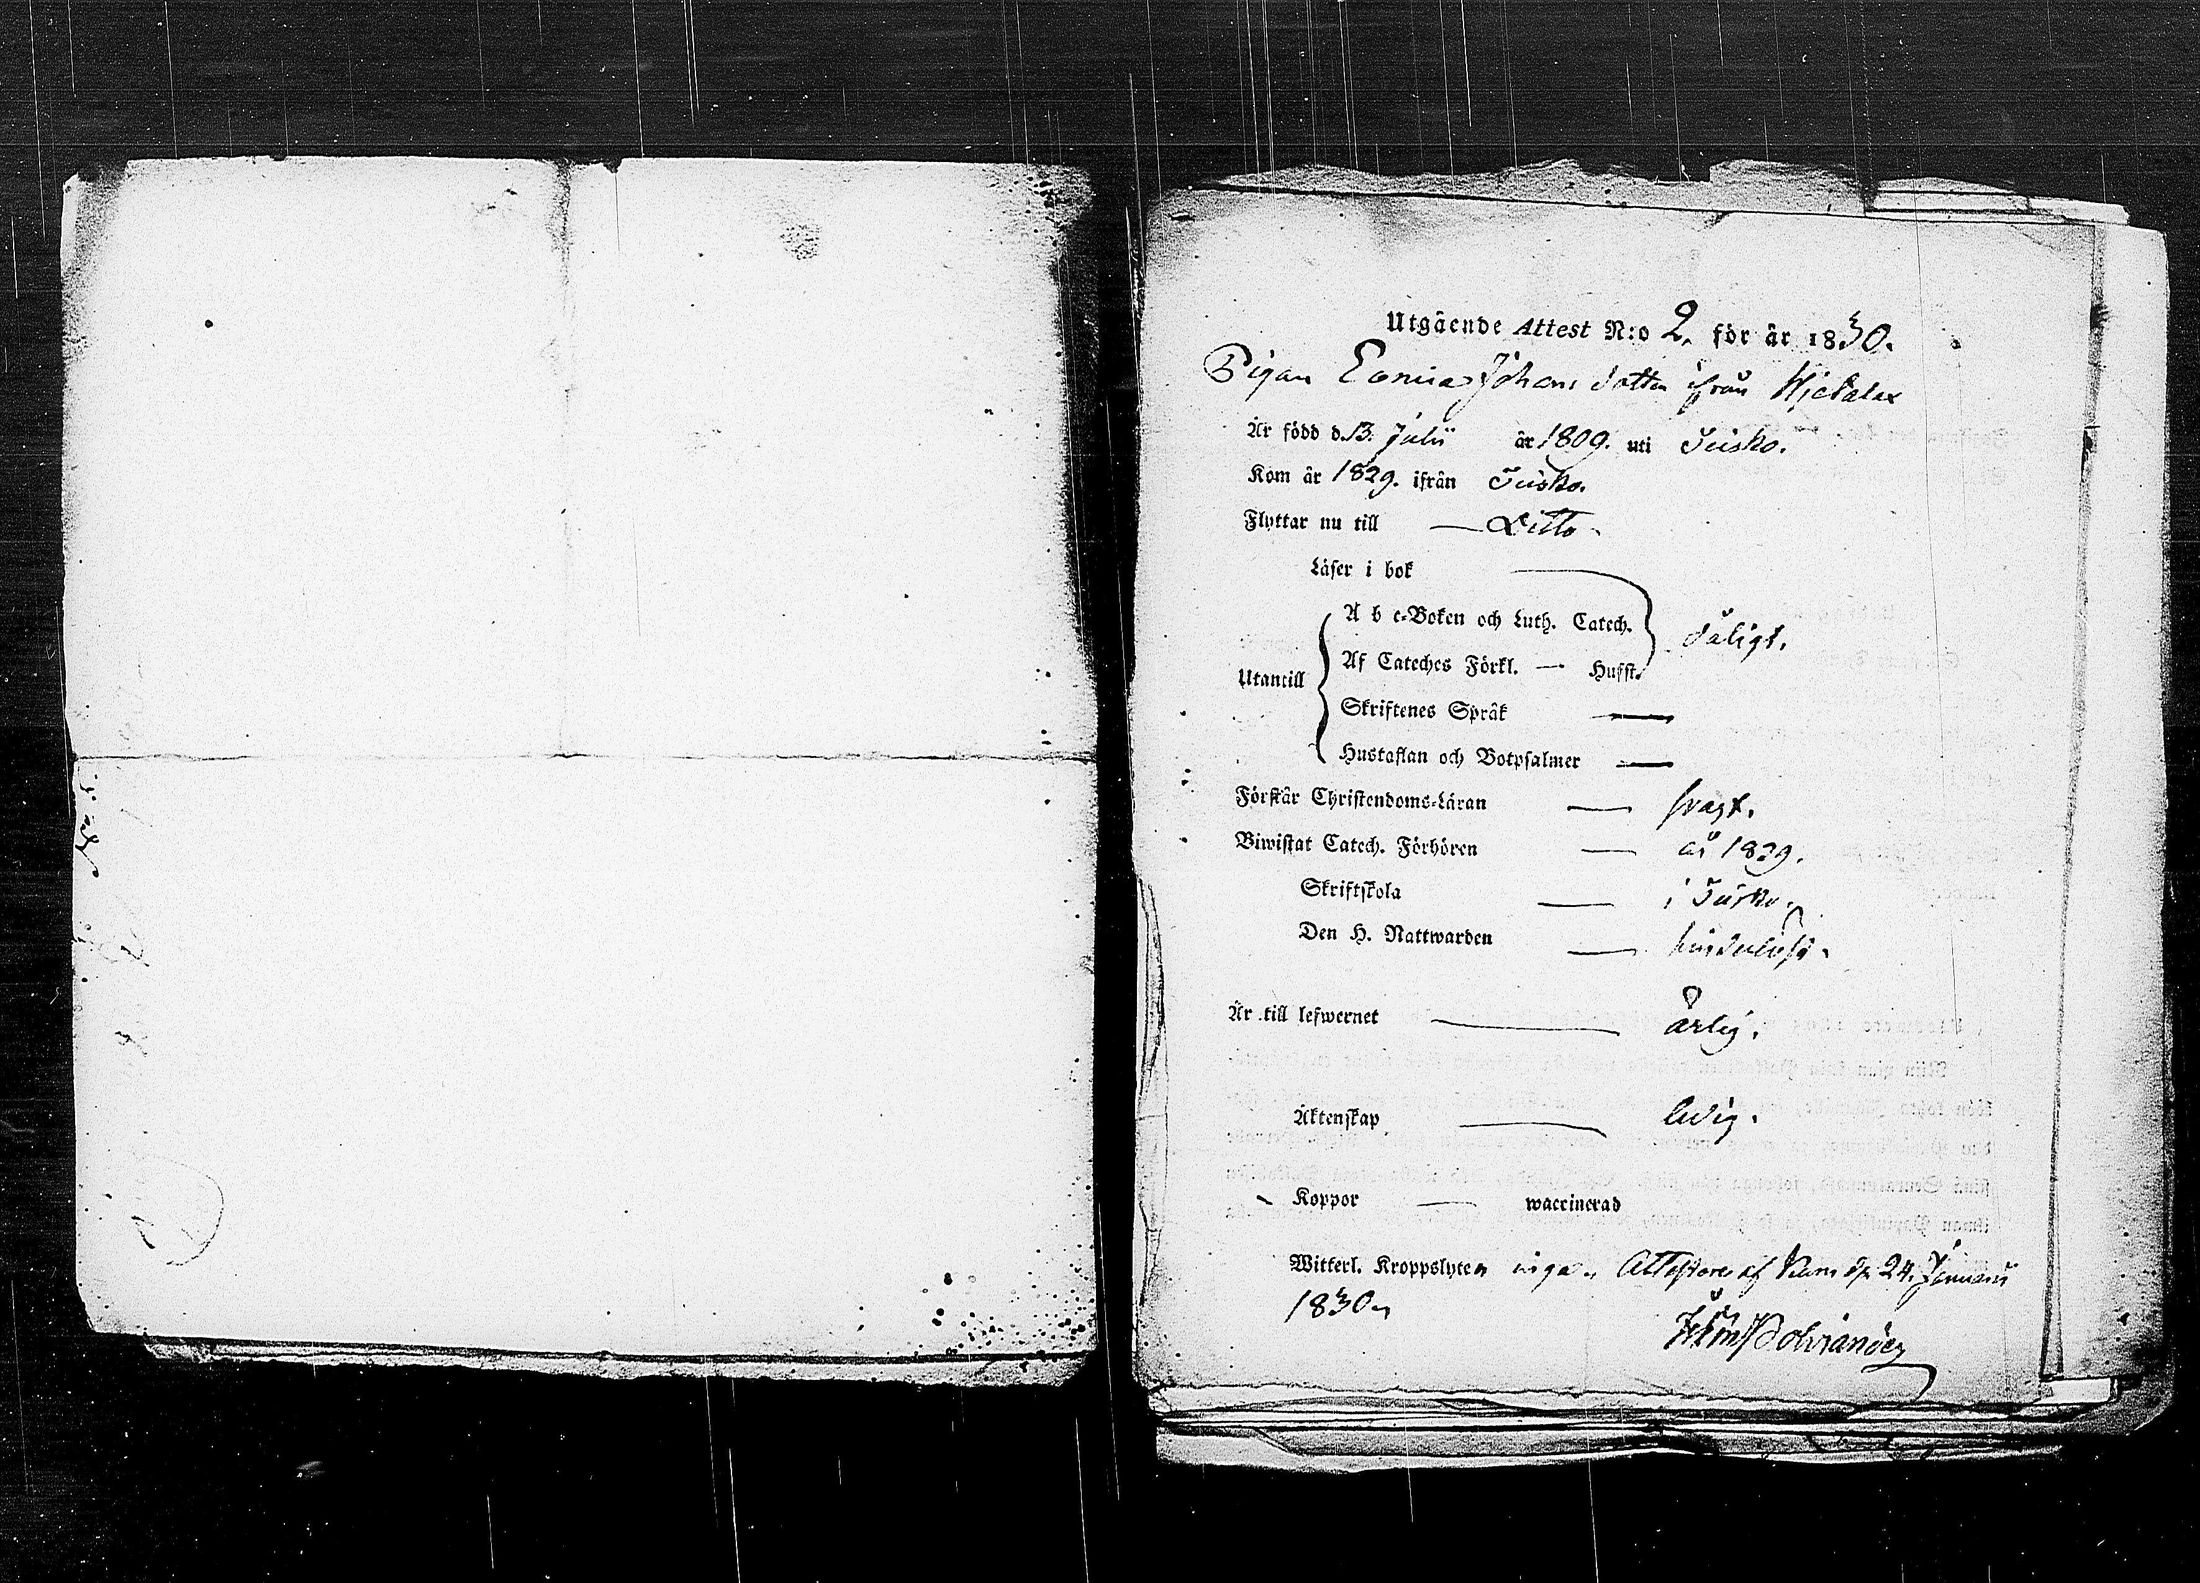 Utgående Attest N:o 2. för år 1830.
Pigan Johans dotter ifrån
Är född d. 13. Julii år 1809. uti Tusko.
Kom år 1829. ifrån Tusko.
Flyttar nu till — Ditto
Läser i bok
A b c-Boken och Luth. Catech.
dåligt.
Af Cateches Förkl. — Hufst.
Utantill
Skriftenes Språk —
Hustaflan och Botpsalmer —
Förstår Christendoms-Läran — svagt.
Biwistat Catech. Förhören — år 1829.
Skriftskola — i Tusko.
Den H. Nattwarden —
Är till lefwernet — ärlig.
Äktenskap — ledig.
Koppor — waccinerad
Witterl. Kroppslyten inga. Attesterar af d. 24. Januarii
1830.